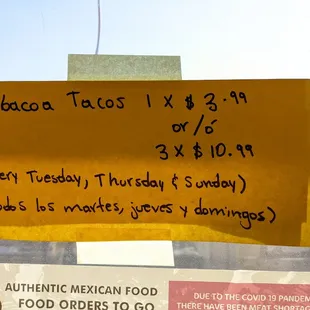 bacoa Tacos 1 x $3.99
or/ó
3 x $10.99
ery Tuesday, Thursday & Sunday)
odos los martes, jueves y domingos)
AUTHENTIC MEXICAN FOOD
FOOD ORDERS TO GO
DUE TO THE COVID 19 PANDEM
THERE HAVE BEEN MEAT SHORTAG